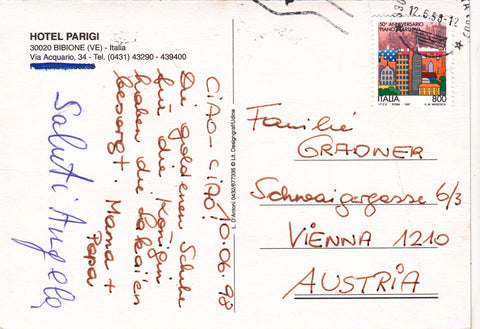 HOTEL PARIGI
30020 BIBIONE (VE) - Italia
Via Acquario, 34 - Tel. (0431) 43290 - 439400
12.6.98-12
50° ANNIVERSARIO
"PIANO MARSHALL"
ITALIA 800
I.P.Z.S. ROMA 1997
CIAO-CIAO! 10.06.98
Die goldenen Schuhe
für die Königin
haben die Lakaien
besorgt. Mama +
Papa
Saluti Angela
L. D'Antoni 0432/677335 © Lit. Designgraf/Udine
Familie
GRADNER
Schwaigergasse 6/3
VIENNA 1210
AUSTRIA